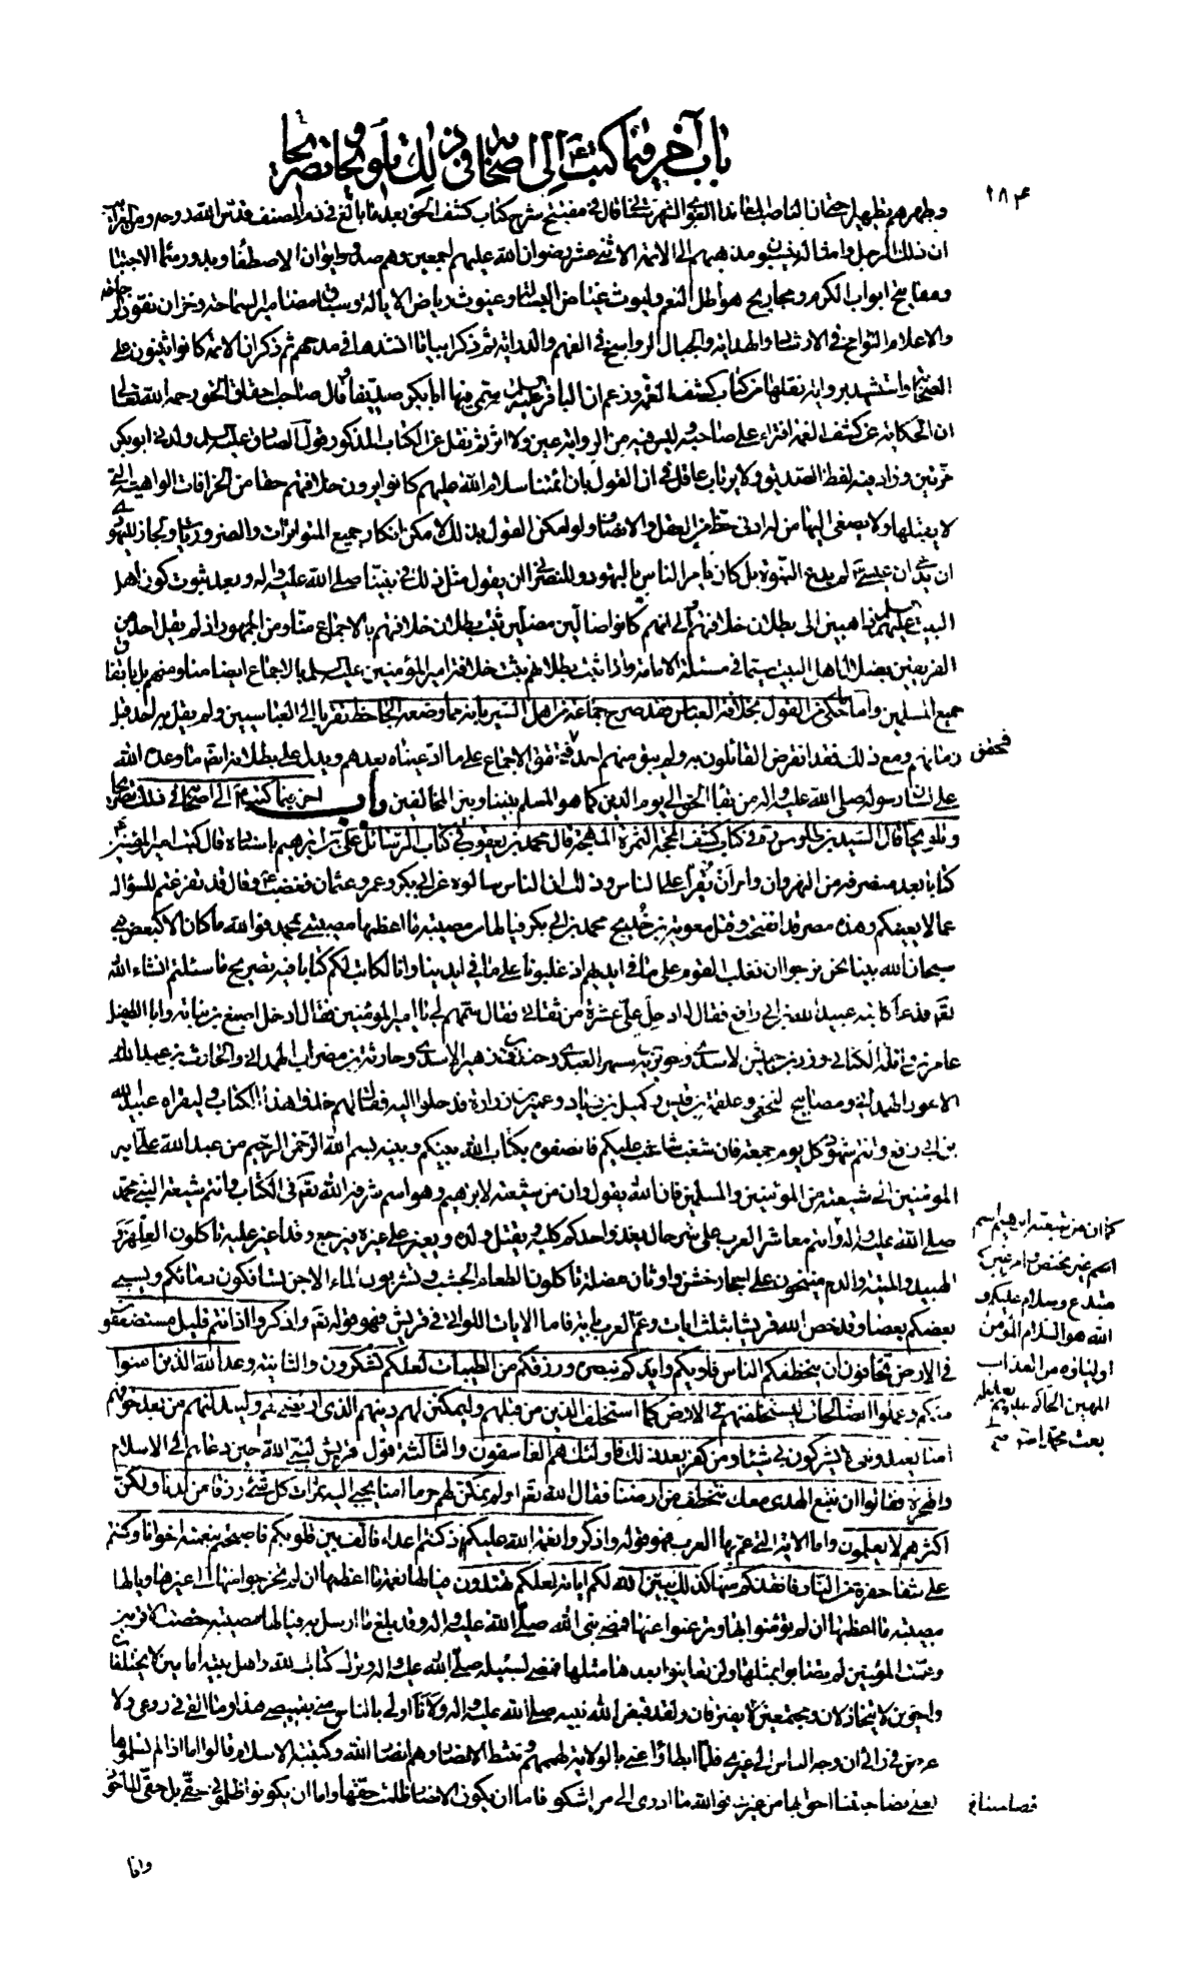 باب آخر فيما كتب ع إلى أصحابه في ذلك تلويحا وتصريحا
١٨٤
ان ذلك الرجل وامثاله ينسبون مذهبهم الى الائمة الاثنى عشر رضوان الله عليهم اجمعين وهم صدور ايوان الاصطفاء وبدور سماء الاجتباء
ومفاتيح ابواب الكرم ومجاريح هواطل النعم وليوث غياض البسالة وغيوث رياض الايالة وسباق مضامير السماحة وخزان نقود
والاعلام الشوامخ في الارشاد والهداية والجبال الرواسخ في الفهم والدراية ثم ذكر ابياتا انشدها في مدحهم ثم ذكر ان الائمة كانوا يثنون على
الصحابة واستشهد برواية نقلها من كتاب كشف الغمة وزعم ان الباقر عليه السلم سمى فيها ابا بكر صديقا وقال صاحب احقاق الحق رحمه الله تعالى
ان الحكاية عن كشف الغمة افتراء على صاحبه وليس فيه من الرواية عين ولا اثر ثم نقل عن الكتاب المذكور قول الصادق عليه السلم ولدني ابو بكر
مرتين وزاد فيه لفظ الصديق ولا يرتاب عاقل في ان القول بان ائمتنا سلام الله عليهم كانوا يرون خلافتهم حقا من الخرافات الواهية التي
لا يقبلها ولا يصغى اليها من له ادنى حظ من العقل والانصاف ولو امكن القول بذلك لامكن انكار جميع المتواترات والضروريات ولجاز لليهود
ان يدعي ان عيسى لم يدع النبوة بل كان يامر الناس باليهودية وللنصارى ان يقول مثل ذلك في نبينا صلى الله عليه وآله وبعد ثبوت كون اهل
البيت عليهم السلم ذاهبين الى بطلان خلافتهم والى انهم كانوا ضالين مضلين ثبت بطلان خلافتهم بالاجماع منا ومن الجمهور اذ لم يقل احد من
الفريقين بضلالة اهل البيت سيما في مسئلة الامامة واذا ثبت بطلانهم ثبت خلافة امير المؤمنين عليه السلم بالاجماع ايضا منا ومنهم بل باتفاق
جميع المسلمين واما ما حكي من القول بخلافة العباس فقد صرح جماعة من اهل السير بانه مما وضعه الجاحظ تقربا الى العباسيين ولم يقل به احد قبل
زمانهم ومع ذلك فقد انقرض القائلون به ولم يبق منهم احد فتحقق الاجماع على ما ادعيناه بعدهم ويدل على بطلانه ايضا ما وعد الله
فتحقق
على لسان رسوله صلى الله عليه وآله من بقاء الحق الى يوم الدين كما هو المسلم بيننا وبين المخالفين باب آخر فيما كتب ع الى اصحابه في ذلك تصريحا
وتلويحا قال السيد بن طاوس ره في كتاب كشف المحجة لثمرة المهجة قال محمد بن يعقوب في كتاب الرسائل علي بن ابراهيم باسناده قال كتب امير المؤمنين ع
كتابا بعد منصرفه من النهروان وامر ان يقرأ على الناس وذلك ان الناس سالوه عن ابي بكر وعمر وعثمان فغضب ع وقال قد تفرغتم للسؤال
عما لا يعنيكم وهذه مصر قد انفتحت وقتل معوية بن خديج محمد بن ابي بكر فيالها من مصيبة ما اعظمها مصيبتي بمحمد فوالله ما كان الا كبعض بني
سبحان الله بينا نحن نرجو ان نغلب القوم على ما في ايديهم اذ غلبونا على ما في ايدينا وانا كاتب لكم كتابا فيه تصريح ما سئلتم انشاء الله
تع فدعا كاتبه عبيد الله بن ابي رافع فقال له ادخل علي عشرة من ثقاتي فقال سمهم لي يا امير المؤمنين فقال ادخل اصبغ بن نباتة وابا الطفيل
عامر بن واثلة الكناني وزر بن حبيش الاسدي وجويرية بن مسهر العبدي وخندف بن زهير الاسدي وحارثة بن مضرب الهمداني والحارث بن عبد الله
الاعور الهمداني ومصابيح النخعي وعلقمة بن قيس وكميل بن زياد وعمير بن زرارة فدخلوا اليه فقال لهم خذوا هذا الكتاب وليقراه عبيد الله
بن ابي رافع وانتم شهود كل يوم جمعة فان شغب شاغب عليكم فانصفوه بكتاب الله بينكم وبينه بسم الله الرحمن الرحيم من عبد الله علي امير
المؤمنين الى شيعته من المؤمنين والمسلمين فان الله يقول وان من شيعته لابراهيم وهو اسم شرفه الله تع في الكتاب وانتم شيعة النبي محمد
صلى الله عليه وآله وانتم معاشر العرب على شر حال يغذو احدكم كلبه ويقتل ولده ويغير على غيره فيرجع وقد اغير عليه تاكلون العلهز و
الهبيد والميتة والدم منيخون على احجار خشن واوثان مضلة تاكلون الطعام الجشب وتشربون الماء الاجن تسافكون دمائكم ويسبي
بعضكم بعضا وقد خص الله قريشا بثلث ايات وعم العرب باية فاما الايات اللواتي في قريش فهو قوله تع واذكروا اذ انتم قليل مستضعفون
في الارض تخافون ان يتخطفكم الناس فاويكم وايدكم بنصره ورزقكم من الطيبات لعلكم تشكرون والثانية وعد الله الذين امنوا
منكم وعملوا الصالحات ليستخلفنهم في الارض كما استخلف الذين من قبلهم وليمكنن لهم دينهم الذي ارتضى لهم وليبدلنهم من بعد خوفهم
امنا يعبدونني لا يشركون بي شيئا ومن كفر بعد ذلك فاولئك هم الفاسقون والثالثة قول قريش لنبي الله حين دعاهم الى الاسلام
والهجرة فقالوا ان نتبع الهدى معك نتخطف من ارضنا فقال الله تع اولم نمكن لهم حرما امنا يجبى اليه ثمرات كل شئ رزقا من لدنا ولكن
اكثرهم لا يعلمون واما الاية التي عم بها العرب فهو قوله واذكروا نعمة الله عليكم اذ كنتم اعداء فالف بين قلوبكم فاصبحتم بنعمته اخوانا وكنتم
على شفا حفرة من النار فانقذكم منها كذلك يبين الله لكم اياته لعلكم تهتدون فيالها نعمة ما اعظمها ان لم تخرجوا منها الى غيرها ويالها
مصيبة ما اعظمها ان لم تؤمنوا بها وترغبوا عنها فمضى نبي الله صلى الله عليه وآله وقد بلغ ما ارسل به فيالها مصيبة خصت الاقربين
وعمت المؤمنين لم تصابوا بمثلها ولن تعاينوا بعدها مثلها فمضى لسبيله صلى الله عليه وآله وترك كتاب الله واهل بيته امامين لا يختلفان
واخوين لا يتخاذلان ومجتمعين لا يفترقان ولقد قبض الله نبيه صلى الله عليه وآله ولانا اولى بالناس مني بقميصي هذا وما القي في روعي ولا
عرض في رايي ان وجه الناس الى غيري فلما ابطاوا عني بالولاية لهممهم وتثبط الانصار وهم انصار الله وكتيبة الاسلام قالوا اما اذا لم تسلموها
لعلي فصاحبنا احق بها من غيره فوالله ما ادري الى من اشكو فاما ان يكون الانصار ظلمت حقها واما ان يكونوا ظلموني حقي بل حقي الماخوذ
وانا